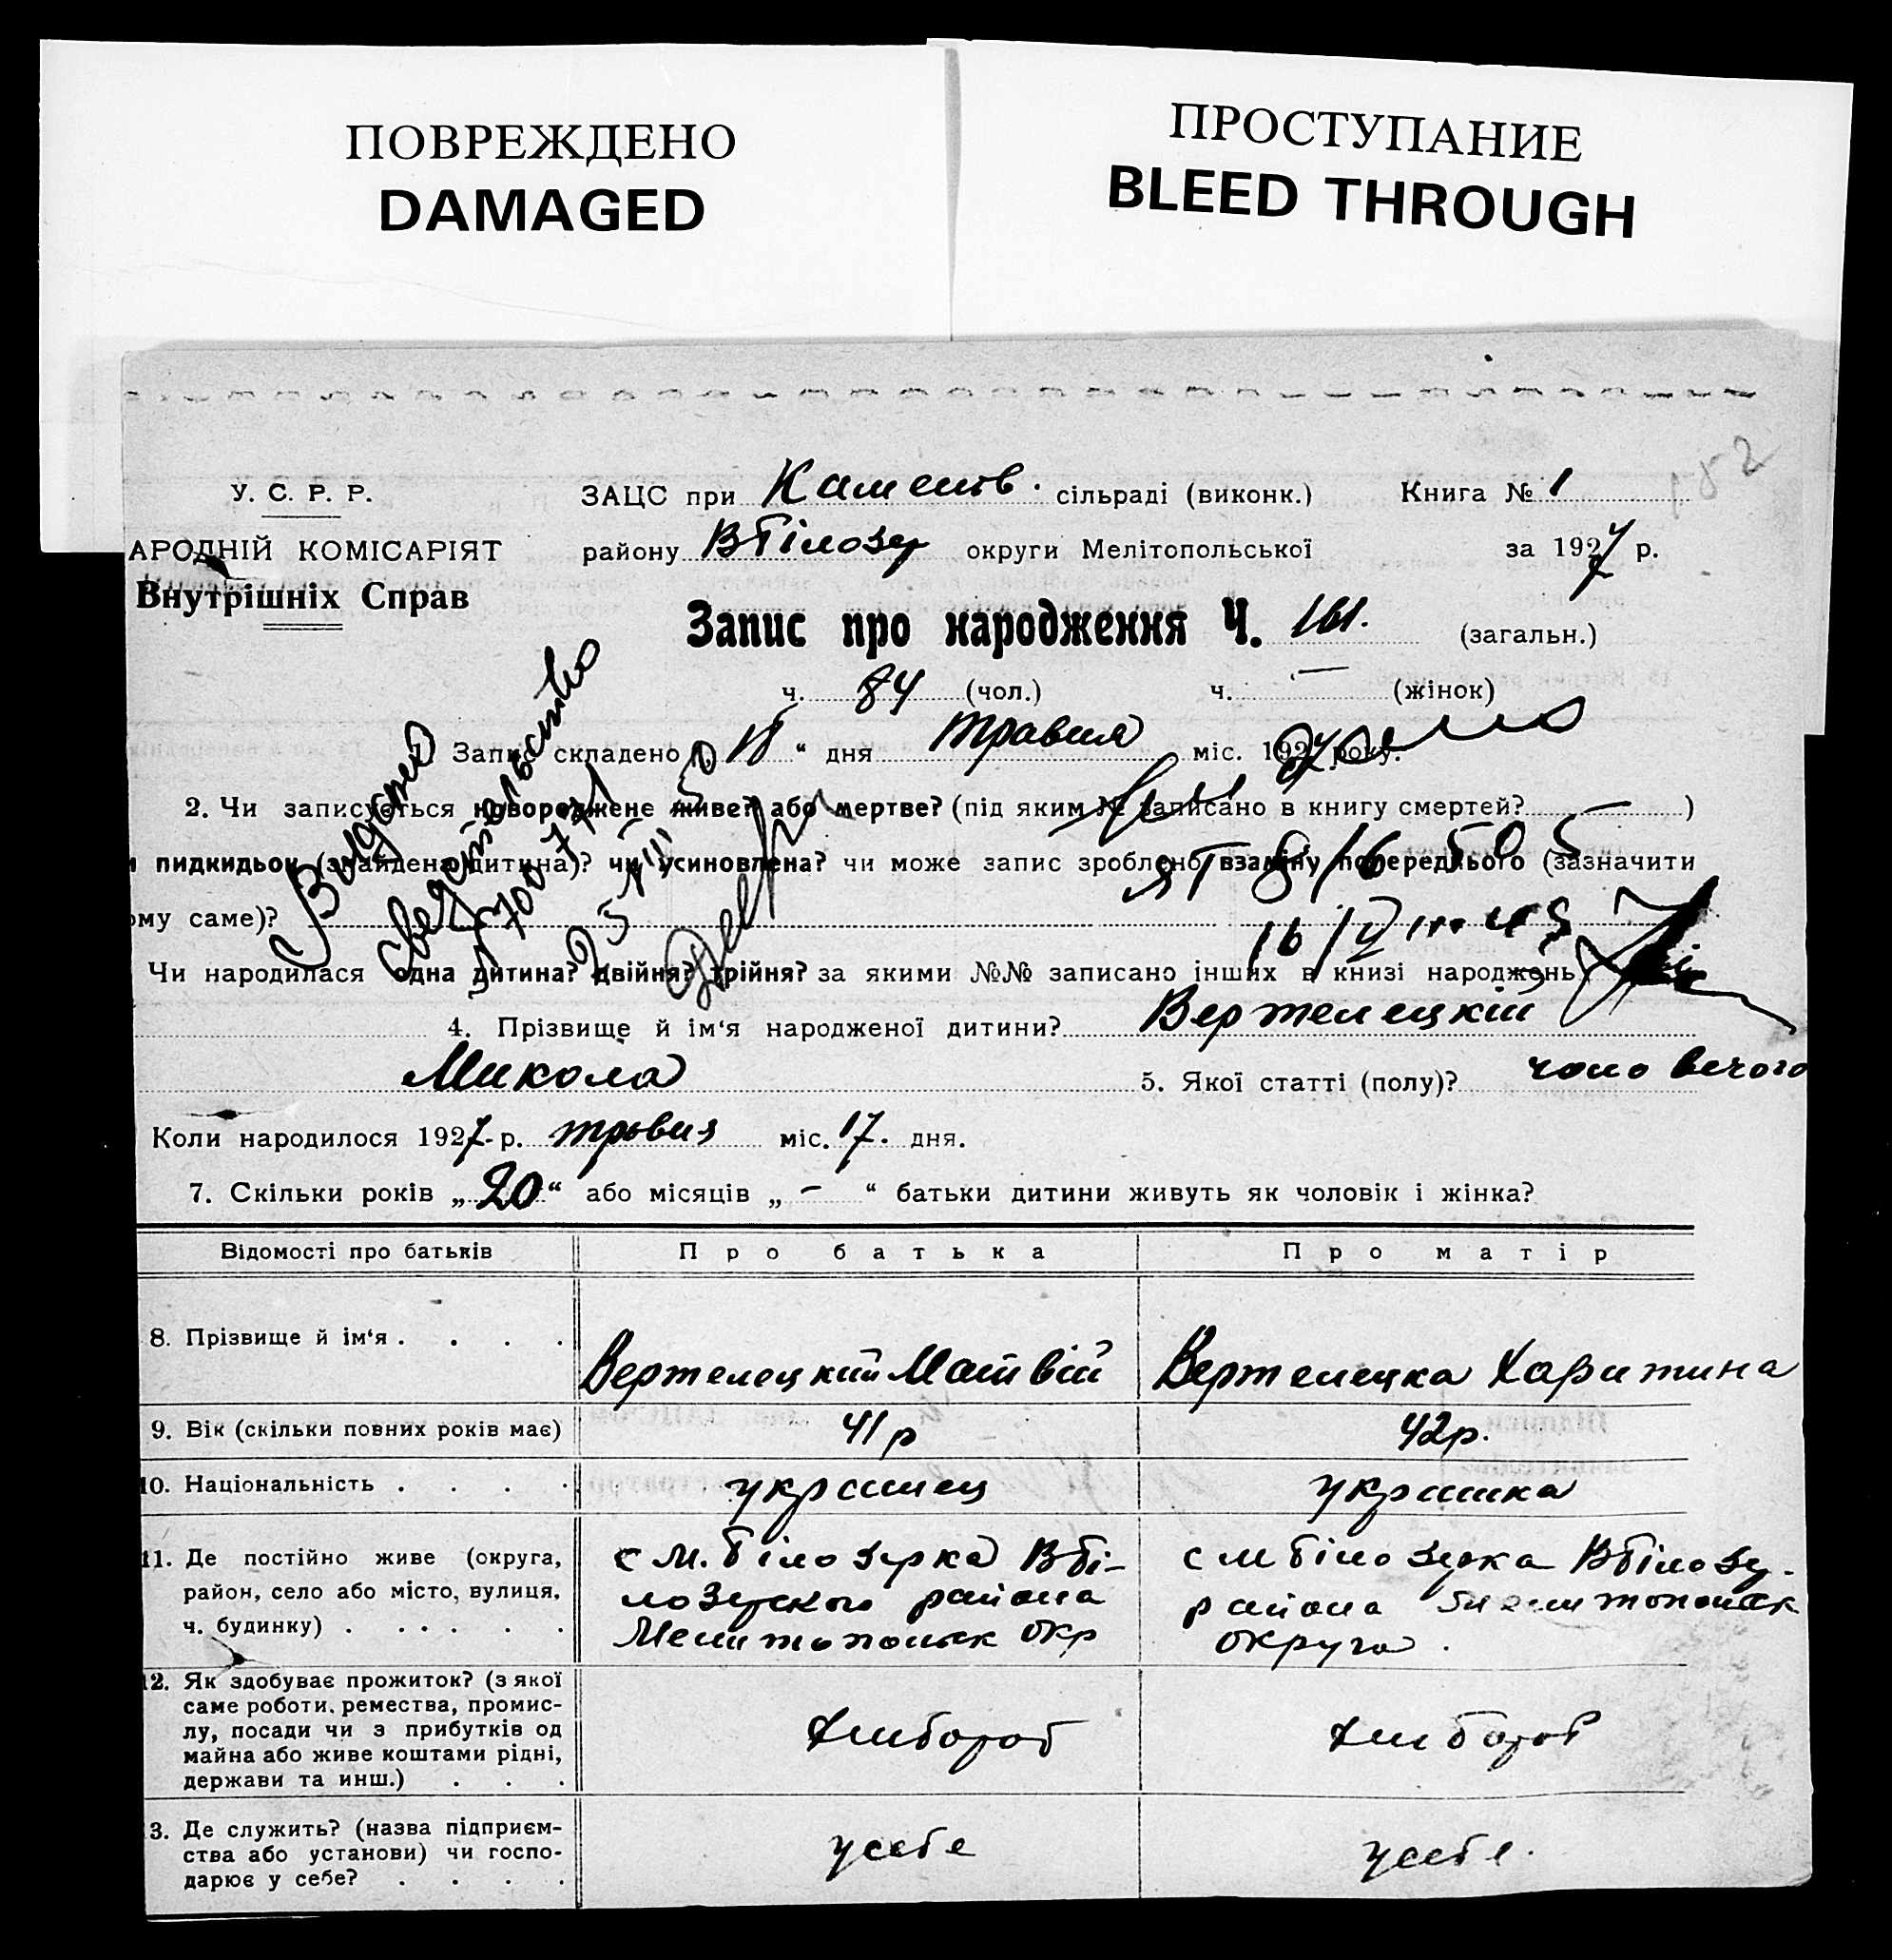 ПОВРЕЖДЕНО
DAMAGED
ПРОСТУПАНИЕ
BLEED THROUGH
152
У. С. Р. Р.
ЗАЦС при Каменв. сільраді (виконк.) Книга № 1
АРОДНІЙ КОМІСАРІЯТ
району ВБілозер округи Мелітопольської за 1927 р.
Внутрішніх Справ
Запис про народження Ч. 161. (загальн.)
ч. 84 (чол.) ч. — (жінок)
Запис складено 18 “ дня травня міс. 1927 року.
2. Чи записується новороджене живе? або мертве? (під яким № записано в книгу смертей? — )
и пидкидьок (знайдена дитина)? чи усиновлена? чи може запис зроблено взаміну попереднього (зазначити
ому саме)?
Видано
сведетельство
Чи народилася одна дитина? двійня? трійня? за якими №№ записано інших в книзі народжень
4. Прізвище й ім‘я народженої дитини? Вертелецкій
Микола 5. Якої статті (полу)? чоловечого
Коли народилося 1927 р. травня міс. 17. дня.
7. Скільки років „ 20 “ або місяців „ — “ батьки дитини живуть як чоловік і жінка?
Відомості про батьків Про батька Про матір
8. Прізвище й ім‘я . . . . Вертелецкий Матвій Вертелецка Харитина
9. Вік (скільки повних років має) 41р 42р.
10. Національність . . . . украинец украинка
11. Де постійно живе (округа, с М. Білозерка ВБі- с М Білозерка ВБілозер.
район, село або місто, вулиця, лозерского района района Мелитопольск
ч. будинку) . . . . . . Мелитопольск окр округа.
12. Як здобуває прожиток? (з якої
саме роботи, ремества, промис-
лу, посади чи з прибутків од хлібороб хлібороб
майна або живе коштами рідні,
держави та инш.) . . .
3. Де служить? (назва підприєм-
ства або установи) чи госпо- у себе у себе.
дарює у себе? . . . .